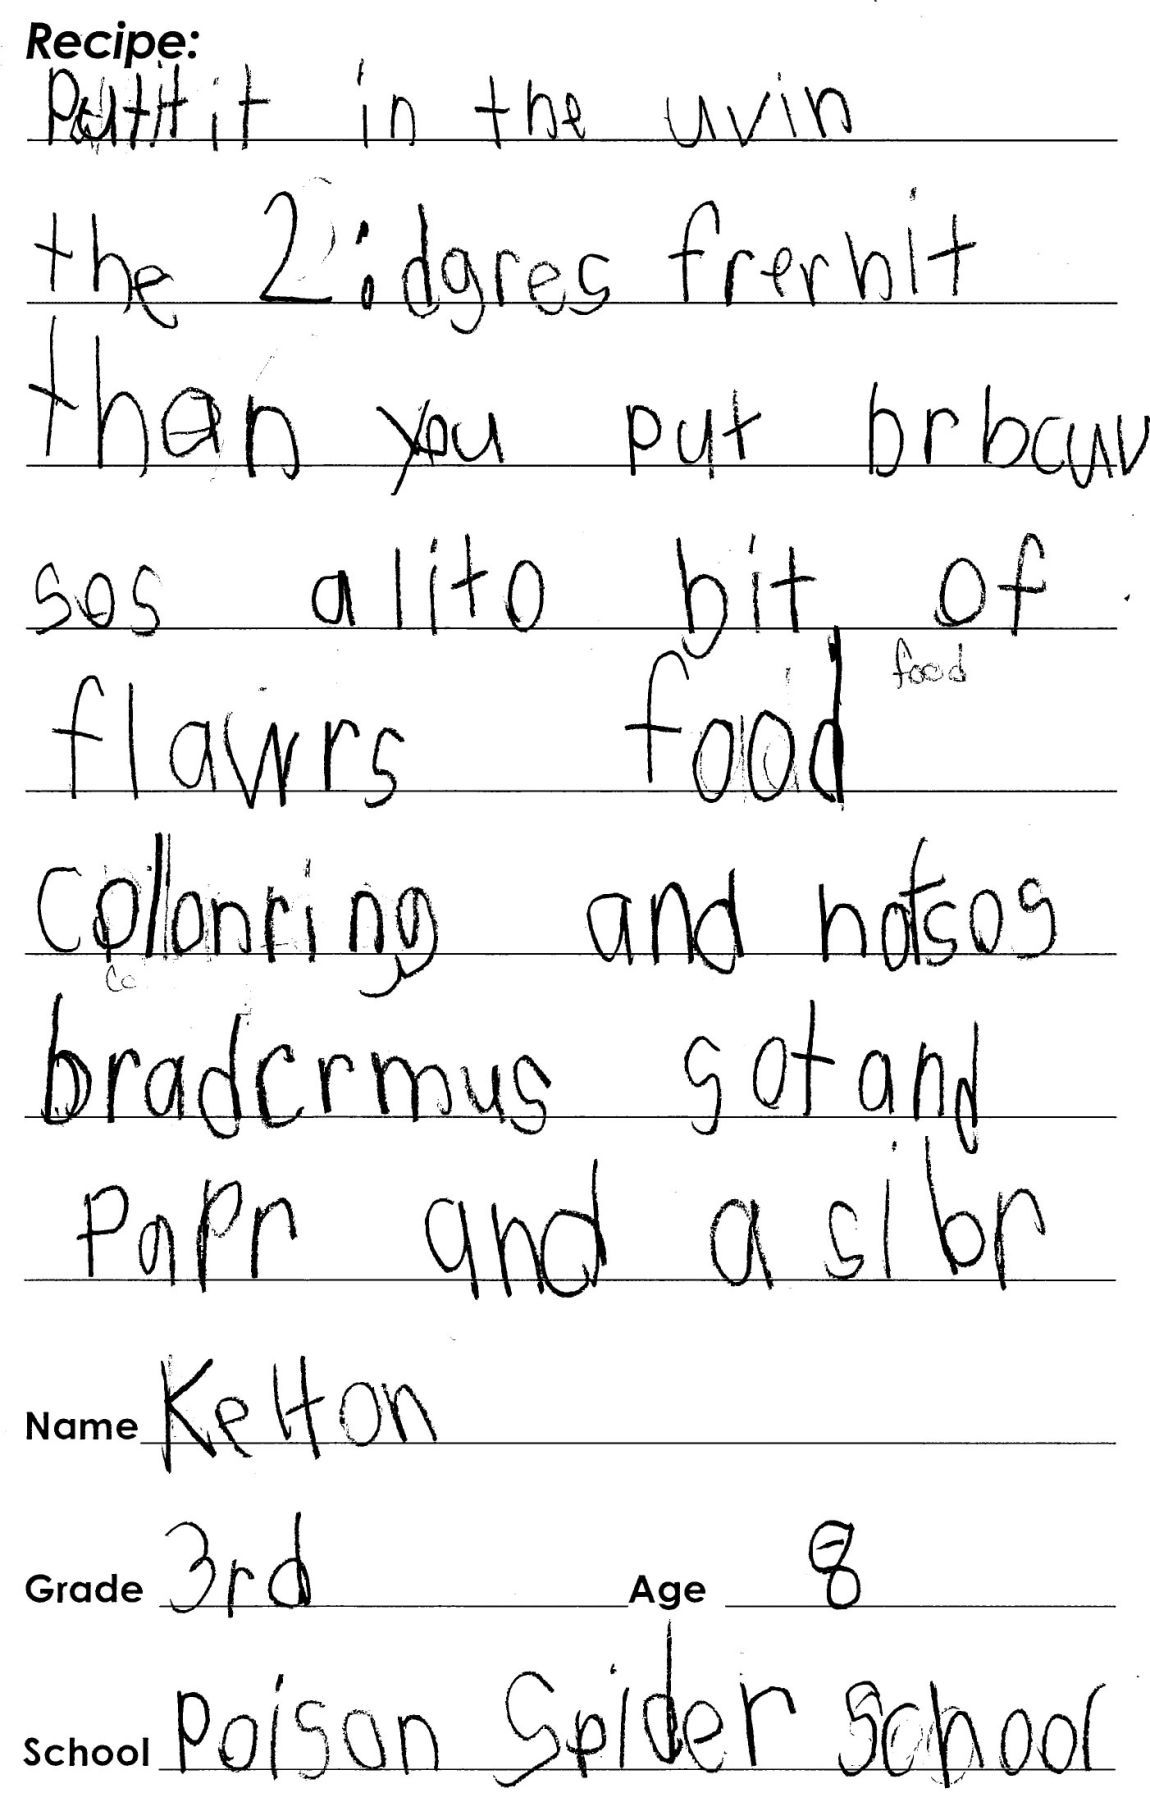 Recipe:
Putt it in the uvin
the 2 dgres frerhit
than you put brbcuv
sos alito bit of
food
flavrs food
Collonring and hotsos
co
bradcrmus sot and
PaPr and a slbr
Name Kelton
Grade 3rd Age 8
School Poison Spider School